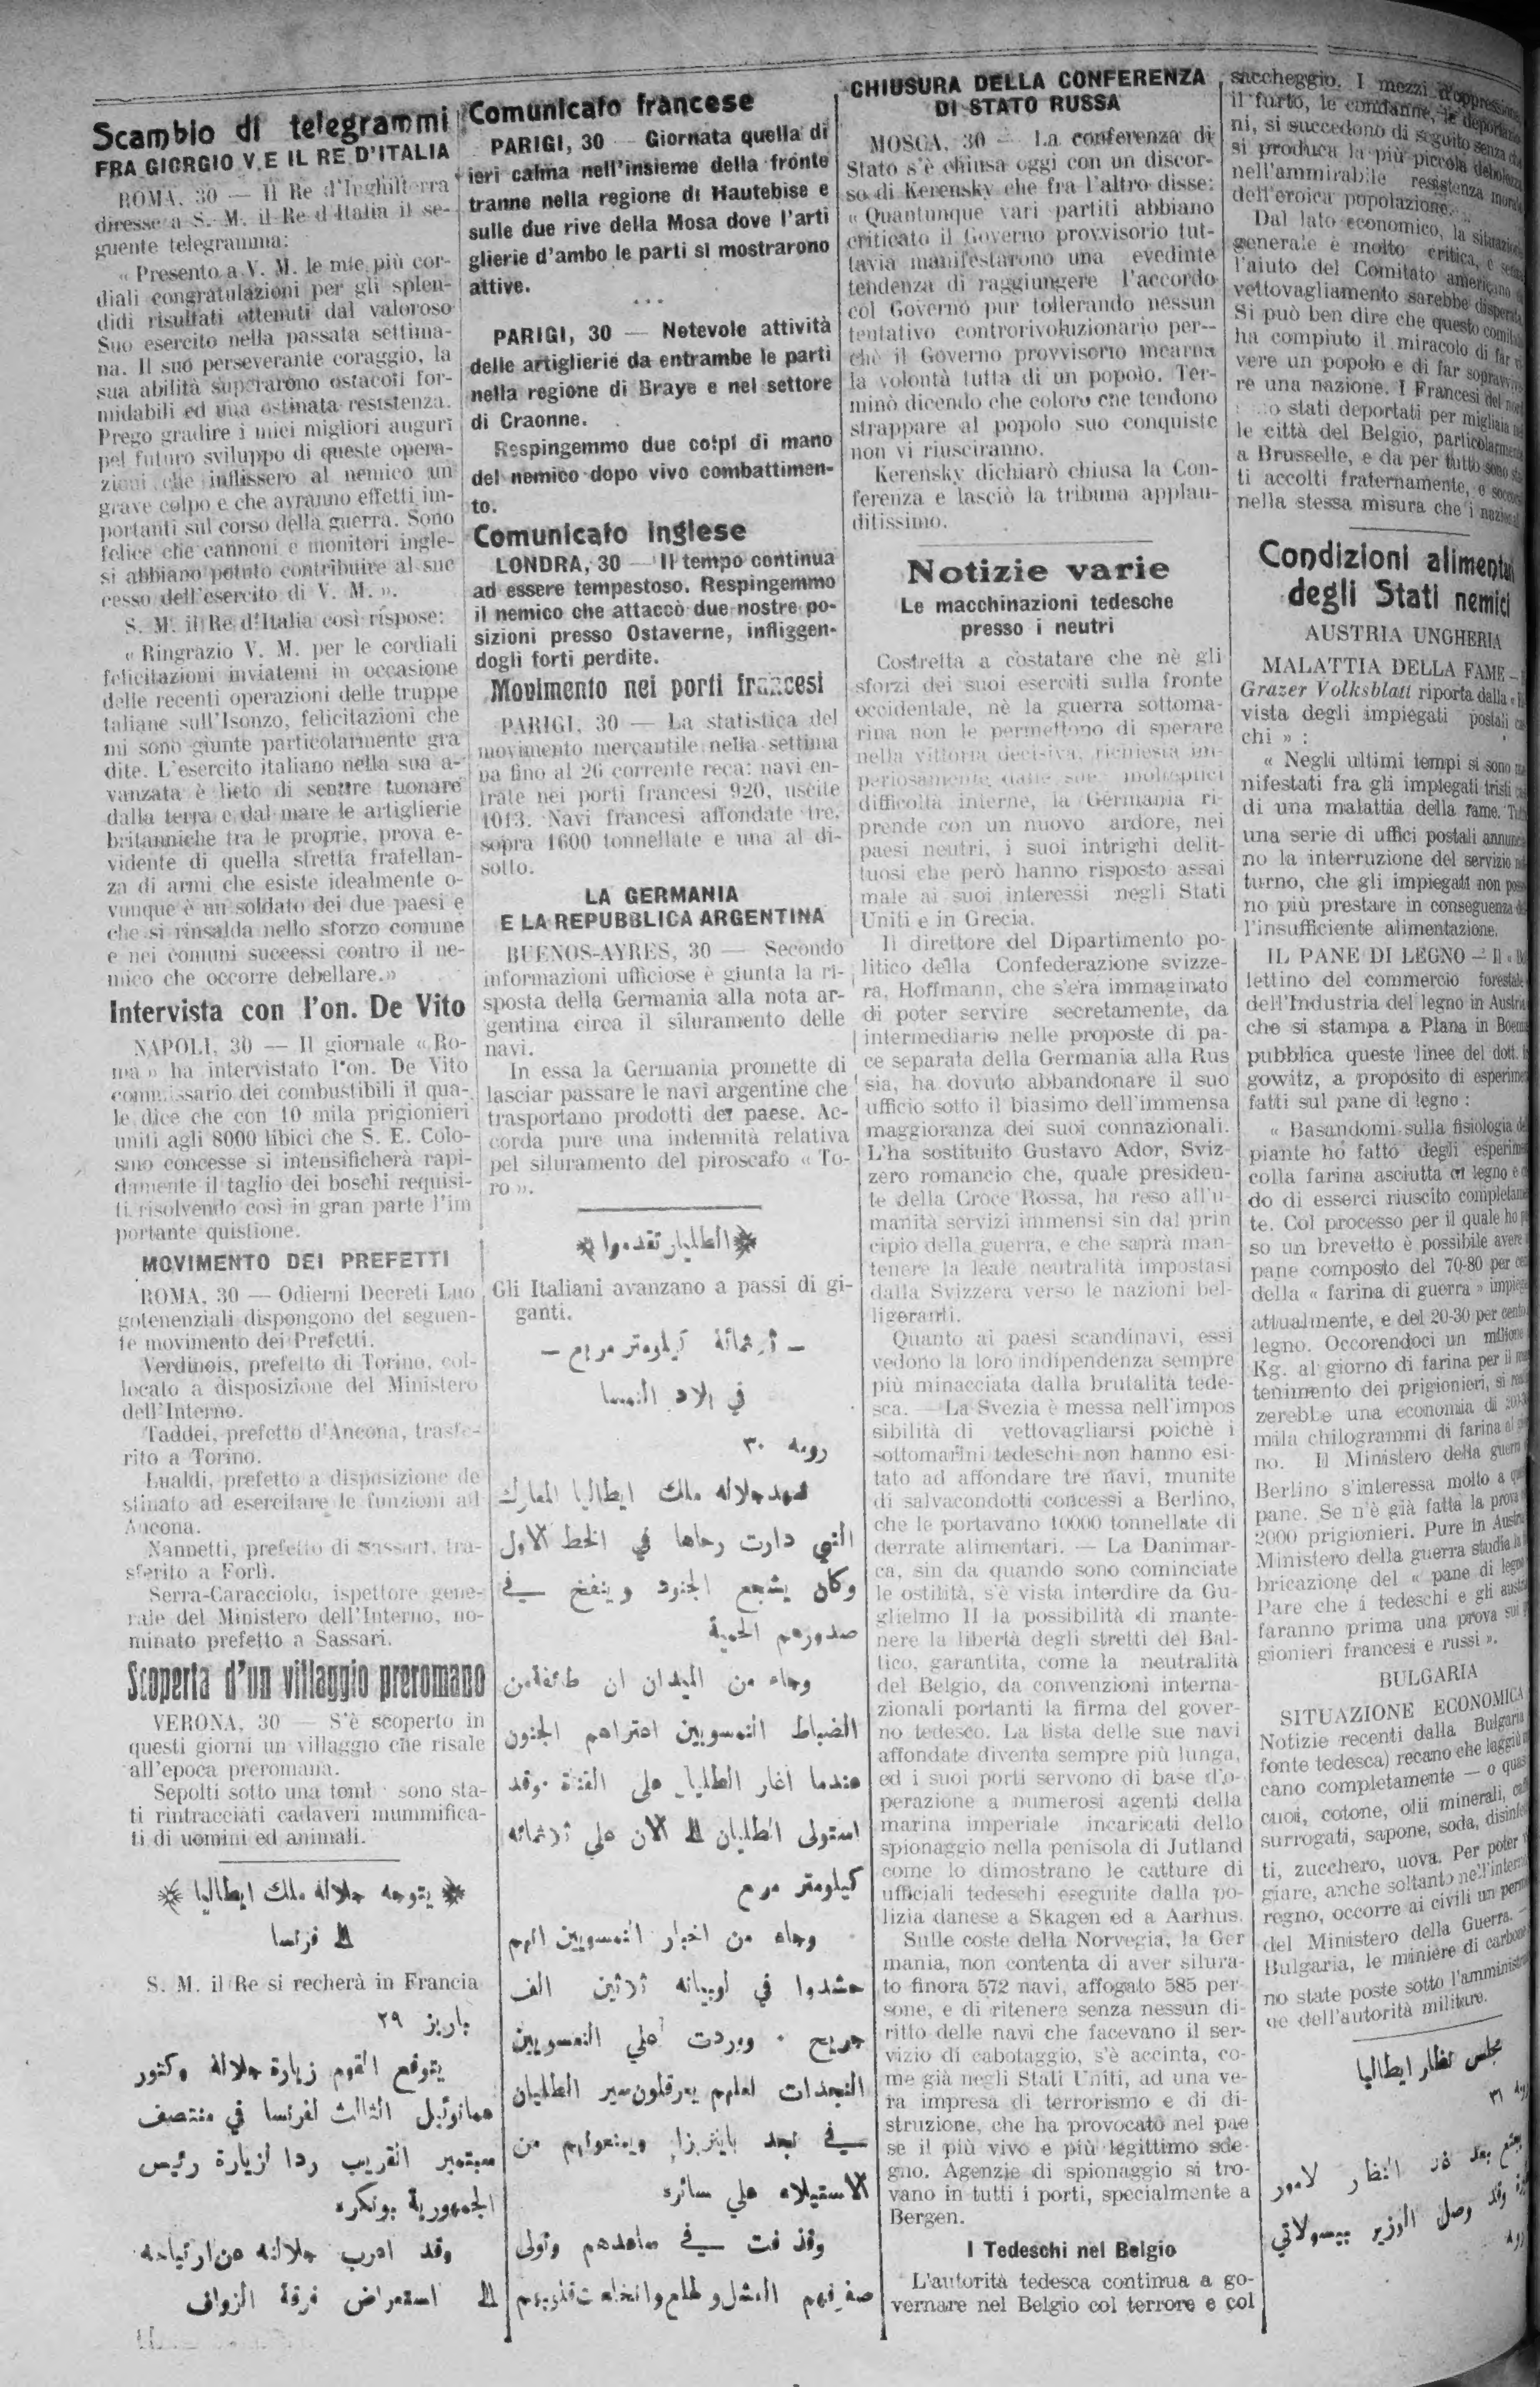 Scambio di telegrammi
FRA GIORGIO V. E IL RE D'ITALIA
ROMA, 30 — Il Re d'Inghilterra
diresse a S. M. il Re d'Italia il se-
guente telegramma:
« Presento a V. M. le mie più cor-
diali congratulazioni per gli splen-
didi risultati ottenuti dal valoroso
Suo esercito nella passata settima-
na. Il suo perseverante coraggio, la
sua abilità superarono ostacoli for-
midabili ed una ostinata resistenza.
Prego gradire i miei migliori auguri
pel futuro sviluppo di queste opera-
zioni che inflissero al nemico un
grave colpo e che avranno effetti im-
portanti sul corso della guerra. Sono
felice che cannoni e monitori ingle-
si abbiano potuto contribuire al suc
cesso dell'esercito di V. M. ».
S. M. il Re d'Italia così rispose:
« Ringrazio V. M. per le cordiali
felicitazioni inviatemi in occasione
delle recenti operazioni delle truppe
italiane sull'Isonzo, felicitazioni che
mi sono giunte particolarmente gra
dite. L'esercito italiano nella sua a-
vanzata è lieto di sentire tuonare
dalla terra e dal mare le artiglierie
britanniche tra le proprie, prova e-
vidente di quella stretta fratellan-
za di armi che esiste idealmente o-
vunque è un soldato dei due paesi e
che si rinsalda nello sforzo comune
e nei comuni successi contro il ne-
mico che occorre debellare.»
Intervista con l'on. De Vito
NAPOLI, 30 — Il giornale « Ro-
ma » ha intervistato l'on. De Vito
commissario dei combustibili il qua-
le dice che con 10 mila prigionieri
uniti agli 8000 libici che S. E. Colo-
simo concesse si intensificherà rapi-
damente il taglio dei boschi requisi-
ti, risolvendo così in gran parte l'im
portante quistione.
MOVIMENTO DEI PREFETTI
ROMA, 30 — Odierni Decreti Luo
gotenenziali dispongono del seguen-
te movimento dei Prefetti.
Verdinois, prefetto di Torino, col-
locato a disposizione del Ministero
dell'Interno.
Taddei, prefetto d'Ancona, trasfe-
rito a Torino.
Lualdi, prefetto a disposizione de
stinato ad esercitare le funzioni ad
Ancona.
Nannetti, prefetto di Sassari, tra-
sferito a Forlì.
Serra-Caracciolo, ispettore gene-
rale del Ministero dell'Interno, no-
minato prefetto a Sassari.
Scoperta d'un villaggio preromano
VERONA, 30 — S'è scoperto in
questi giorni un villaggio che risale
all'epoca preromana.
Sepolti sotto una tomb sono sta-
ti rintracciati cadaveri mummifica-
ti di uomini ed animali.
يتوجه جلالة ملك ايطاليا
الى فرنسا
S. M. il Re si recherà in Francia
باريز ٢٩
يتوقع القوم زيارة جلالة وكتور
عمانوئيل الثالث لفرنسا في منتصف
سبتمبر القريب ردا لزيارة رئيس
الجمهورية بونكره
وقد اعرب جلالته عن ارتياحه
الى استعراض فرقة الزواف
Comunicato francese
PARIGI, 30 — Giornata quella di
ieri calma nell'insieme della fronte
tranne nella regione di Hautebise e
sulle due rive della Mosa dove l'arti
glierie d'ambo le parti si mostrarono
attive.
...
PARIGI, 30 — Notevole attività
delle artiglierie da entrambe le parti
nella regione di Braye e nel settore
di Craonne.
Respingemmo due colpi di mano
del nemico dopo vivo combattimen-
to.
Comunicato inglese
LONDRA, 30 — Il tempo continua
ad essere tempestoso. Respingemmo
il nemico che attaccò due nostre po-
sizioni presso Ostaverne, infliggen-
dogli forti perdite.
Movimento nei porti francesi
PARIGI, 30 — La statistica del
movimento mercantile nella settima
na fino al 26 corrente reca: navi en-
trate nei porti francesi 920, uscite
1013. Navi francesi affondate tre,
sopra 1600 tonnellate e una al di-
sotto.
LA GERMANIA
E LA REPUBBLICA ARGENTINA
BUENOS-AYRES, 30 — Secondo
informazioni ufficiose è giunta la ri-
sposta della Germania alla nota ar-
gentina circa il siluramento delle
navi.
In essa la Germania promette di
lasciar passare le navi argentine che
trasportano prodotti del paese. Ac-
corda pure una indennità relativa
pel siluramento del piroscafo « To-
ro ».
الطليان تقدموا
Gli Italiani avanzano a passi di gi-
ganti.
— ثلاثمائة كيلومتر مربع —
في بلاد النمسا
رومه ٣٠
شهد جلالة ملك ايطاليا المعارك
التي دارت رحاها في الخط الاول
وكان يشجع الجنود وينفخ في
صدورهم الحمية
وجاء من الميدان ان طائفة من
الضباط النمسويين اعتراهم الجنون
عندما اغار الطليان على القناة وقد
استولى الطليان الى الان على ثلاثمائة
كيلومتر مربع
وجاء من اخبار النمسويين انهم
حشدوا في لوبيانه ثلاثين الف
جريح . ووردت على النمسويين
النجدات لعلهم يعرقلون سير الطليان
في نجد باينزيزا ويمنعوهم من
الاستيلاء علي سائره
وقد فت في ساعدهم وتولى
صفوفهم الفشل والهلع وانخلعت قلوبهم
CHIUSURA DELLA CONFERENZA
DI STATO RUSSA
MOSCA, 30 — La conferenza di
Stato s'è chiusa oggi con un discor-
so di Kerensky che fra l'altro disse:
« Quantunque vari partiti abbiano
criticato il Governo provvisorio tut-
tavia manifestarono una evedinte
tendenza di raggiungere l'accordo
col Governo pur tollerando nessun
tentativo controrivoluzionario per--
chè il Governo provvisorio incarna
la volontà tutta di un popolo. Ter-
minò dicendo che coloro che tendono
strappare al popolo suo conquiste
non vi riusciranno.
Kerensky dichiarò chiusa la Con-
ferenza e lasciò la tribuna applau-
ditissimo.
Notizie varie
Le macchinazioni tedesche
presso i neutri
Costretta a costatare che nè gli
sforzi dei suoi eserciti sulla fronte
occidentale, nè la guerra sottoma-
rina non le permettono di sperare
nella vittoria decisiva, richiesta im-
periosamente dalle sue molteplici
difficoltà interne, la Germania ri-
prende con un nuovo ardore, nei
paesi neutri, i suoi intrighi delit-
tuosi che però hanno risposto assai
male ai suoi interessi negli Stati
Uniti e in Grecia.
Il direttore del Dipartimento po-
litico della Confederazione svizze-
ra, Hoffmann, che s'era immaginato
di poter servire secretamente, da
intermediario nelle proposte di pa-
ce separata della Germania alla Rus
sia, ha dovuto abbandonare il suo
ufficio sotto il biasimo dell'immensa
maggioranza dei suoi connazionali.
L'ha sostituito Gustavo Ador, Sviz-
zero romancio che, quale presiden-
te della Croce Rossa, ha reso all'u-
manità servizi immensi sin dal prin
cipio della guerra, e che saprà man-
tenere la leale neutralità impostasi
dalla Svizzera verso le nazioni bel-
ligeranti.
Quanto ai paesi scandinavi, essi
vedono la loro indipendenza sempre
più minacciata dalla brutalità tede-
sca. — La Svezia è messa nell'impos
sibilità di vettovagliarsi poichè i
sottomarini tedeschi non hanno esi-
tato ad affondare tre navi, munite
di salvacondotti concessi a Berlino,
che le portavano 10000 tonnellate di
derrate alimentari. — La Danimar-
ca, sin da quando sono cominciate
le ostilità, s'è vista interdire da Gu-
glielmo II la possibilità di mante-
nere la libertà degli stretti del Bal-
tico, garantita, come la neutralità
del Belgio, da convenzioni interna-
zionali portanti la firma del gover-
no tedesco. La lista delle sue navi
affondate diventa sempre più lunga,
ed i suoi porti servono di base d'o-
perazione a numerosi agenti della
marina imperiale incaricati dello
spionaggio nella penisola di Jutland
come lo dimostrano le catture di
ufficiali tedeschi eseguite dalla po-
lizia danese a Skagen ed a Aarhus.
Sulle coste della Norvegia, la Ger
mania, non contenta di aver silura-
to finora 572 navi, affogato 585 per-
sone, e di ritenere senza nessun di-
ritto delle navi che facevano il ser-
vizio di cabotaggio, s'è accinta, co-
me già negli Stati Uniti, ad una ve-
ra impresa di terrorismo e di di-
struzione, che ha provocato nel pae
se il più vivo e più legittimo sde-
gno. Agenzie di spionaggio si tro-
vano in tutti i porti, specialmente a
Bergen.
I Tedeschi nel Belgio
L'autorità tedesca continua a go-
vernare nel Belgio col terrore e col
saccheggio. I mezzi d'oppressione,
il furto, le condanne, le deportazio-
ni, si succedono di seguito senza che
si produca la più piccola debolezza
nell'ammirabile resistenza morale
dell'eroica popolazione.
Dal lato economico, la situazione
generale è molto critica, e senza
l'aiuto del Comitato americano di
vettovagliamento sarebbe disperata.
Si può ben dire che questo comitato
ha compiuto il miracolo di far vi
vere un popolo e di far sopravvive
re una nazione. I Francesi del nord
sono stati deportati per migliaia nel
le città del Belgio, particolarmente
a Brusselle, e da per tutto sono sta
ti accolti fraternamente, e soccorsi
nella stessa misura che i nazionali
Condizioni alimentari
degli Stati nemici
AUSTRIA UNGHERIA
MALATTIA DELLA FAME —
Grazer Volksblatt riporta dalla «
vista degli impiegati postali
chi » :
« Negli ultimi tempi si sono ma
nifestati fra gli impiegati tristi
di una malattia della fame. Tutta
una serie di uffici postali annuncia
no la interruzione del servizio not
turno, che gli impiegati non posso
no più prestare in conseguenza del
l'insufficiente alimentazione.
IL PANE DI LEGNO — Il « Bol
lettino del commercio forestale
dell'Industria del legno in Austria
che si stampa a Plana in Boemia
pubblica queste linee del dott.
gowitz, a proposito di esperimenti
fatti sul pane di legno :
« Basandomi sulla fisiologia delle
piante ho fatto degli esperimenti
colla farina asciutta di legno e
do di esserci riuscito completamen
te. Col processo per il quale ho
so un brevetto è possibile avere
pane composto del 70-80 per cento
della « farina di guerra » impiegata
attualmente, e del 20-30 per cento
legno. Occorendoci un milione
Kg. al giorno di farina per il man
tenimento dei prigionieri, si rea
zerebbe una economia di 200-3
mila chilogrammi di farina al gior
no. Il Ministero della guerra
Berlino s'interessa molto a questo
pane. Se n'è già fatta la prova
2000 prigionieri. Pure in Austria
Ministero della guerra studia la
bricazione del « pane di legno
Pare che i tedeschi e gli austri
faranno prima una prova sui pri
gionieri francesi e russi ».
BULGARIA
SITUAZIONE ECONOMICA
Notizie recenti dalla Bulgaria
fonte tedesca) recano che laggiù
cano completamente — o quasi
cuoi, cotone, olii minerali, caffè
surrogati, sapone, soda, disinfet
ti, zucchero, uova. Per poter
giare, anche soltanto nell'interno
regno, occorre ai civili un perme
del Ministero della Guerra. —
Bulgaria, le miniere di carbone
no state poste sotto l'amministra
ne dell'autorità militare.
مجلس نظار ايطاليا
رومه ٣١
يجتمع بعد غد النظار لامور
وقد وصل الوزير بيسولاتي
رومه